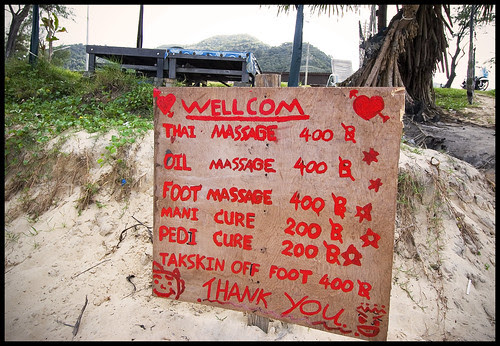 WELLCOM
THAI MASSAGE 400 ฿
OIL MASSAGE 400 ฿
FOOT MASSAGE 400 ฿
MANI CURE 200 ฿
PEDI CURE 200 ฿
TAKSKIN OFF FOOT 400 ฿
THANK YOU